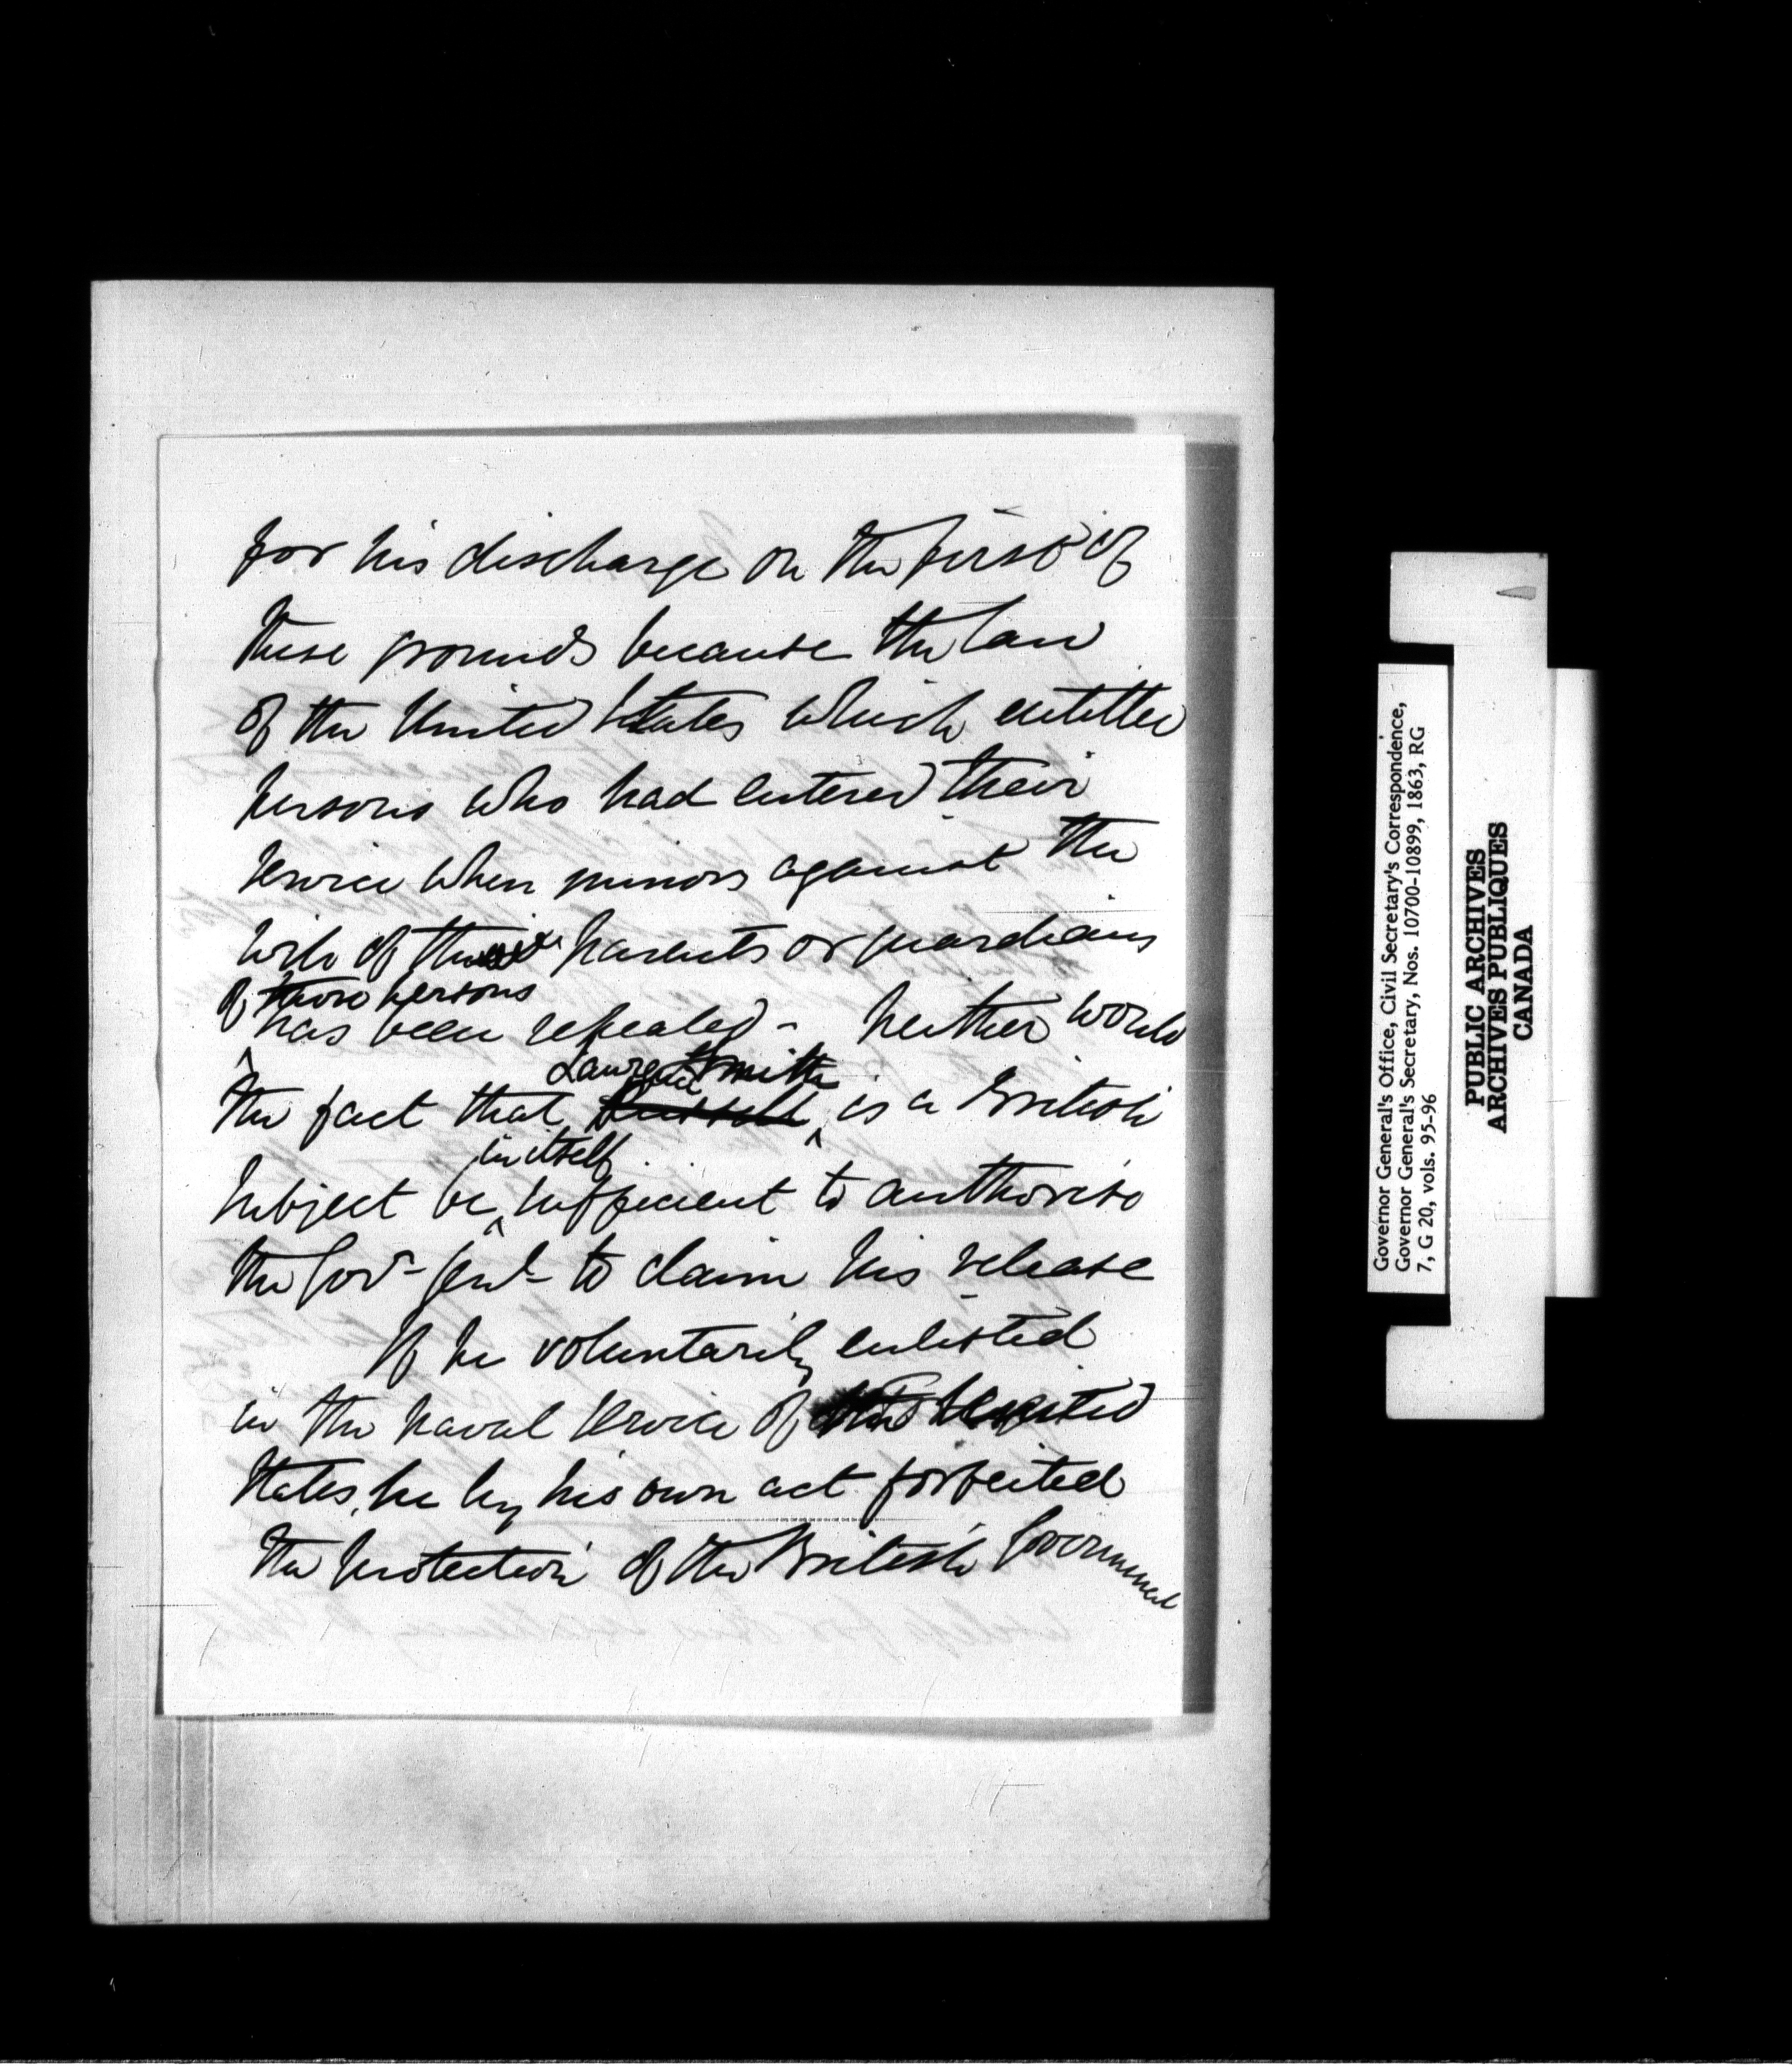 for his discharge on the first of
these grounds because the law
of the United States which entitled
persons who had entered their
service when minors against the
wish of the parents or guardians
of those persons
has been repealed - Neither would
Laurence Smith
the fact that Russell is a British
in itself
subject be sufficient to authorise
the Govr Genl to claim his release
If he voluntarily enlisted
in the Naval Service of the United
States, he by his own act forfeited
the protection of the British Government
Governor General's Office, Civil Secretary's Correspondence,
Governor General's Secretary, Nos. 10700-10899, 1863, RG
7, G 20, vols. 95-96
PUBLIC ARCHIVES
ARCHIVES PUBLIQUES
CANADA